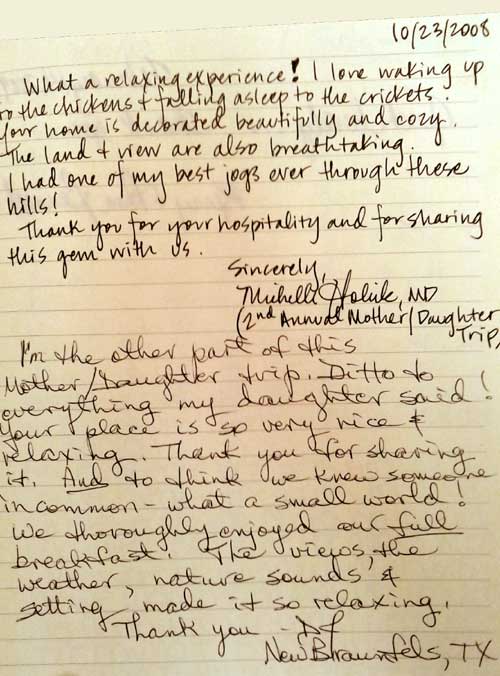 10/23/2008
What a relaxing experience! I love waking up
to the chickens & falling asleep to the crickets.
Your home is decorated beautifully and cozy.
The land & view are also breathtaking.
I had one of my best jogs ever through these
hills!
Thank you for your hospitality and for sharing
this gem with us.
Sincerely,
Michelle MD
(2nd Annual Mother/Daughter
Trip)
I'm the other part of this
Mother/Daughter trip. Ditto to
everything my daughter said!
Your place is so very nice &
relaxing. Thank you for sharing
it. And to think we knew someone
in common - what a small world!
We thoroughly enjoyed our full
breakfast. The views, the
weather, nature sounds &
setting made it so relaxing.
Thank you -
New Braunfels, TX